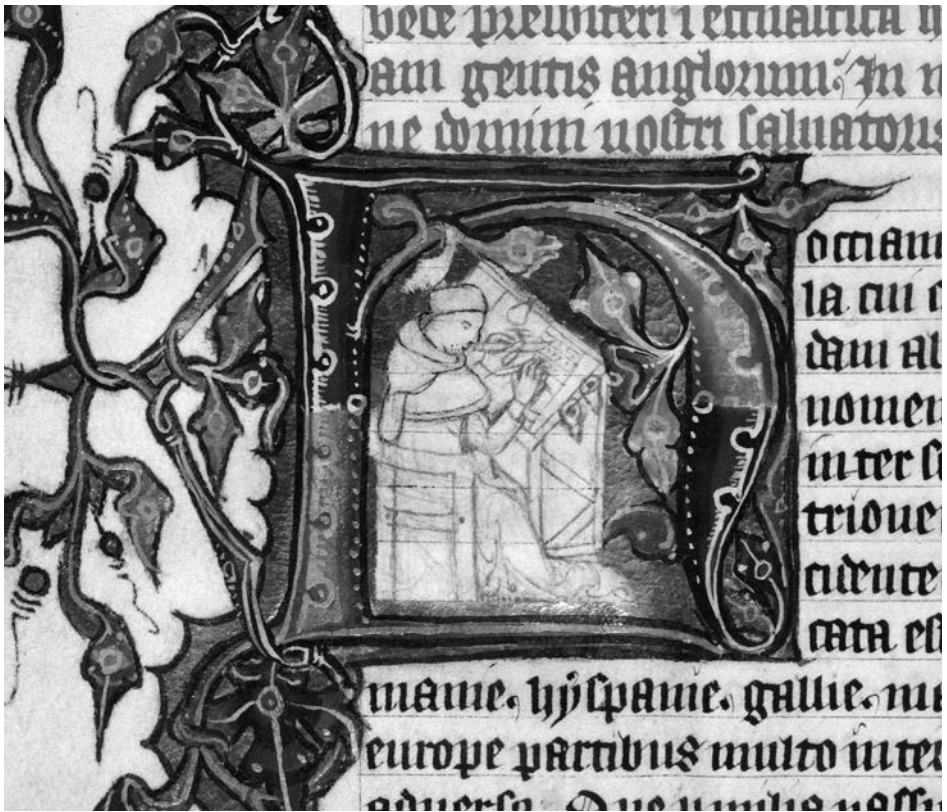 bede presbiteri i
am gentis anglorum. In
ne domini nostri saluatoris
occiani
la cui
dam al
nomen
inter se
trione
cidente
cata est
manie. hyspanie. gallie. ma
europe partibus multo inter
aduersa. Que milia passu